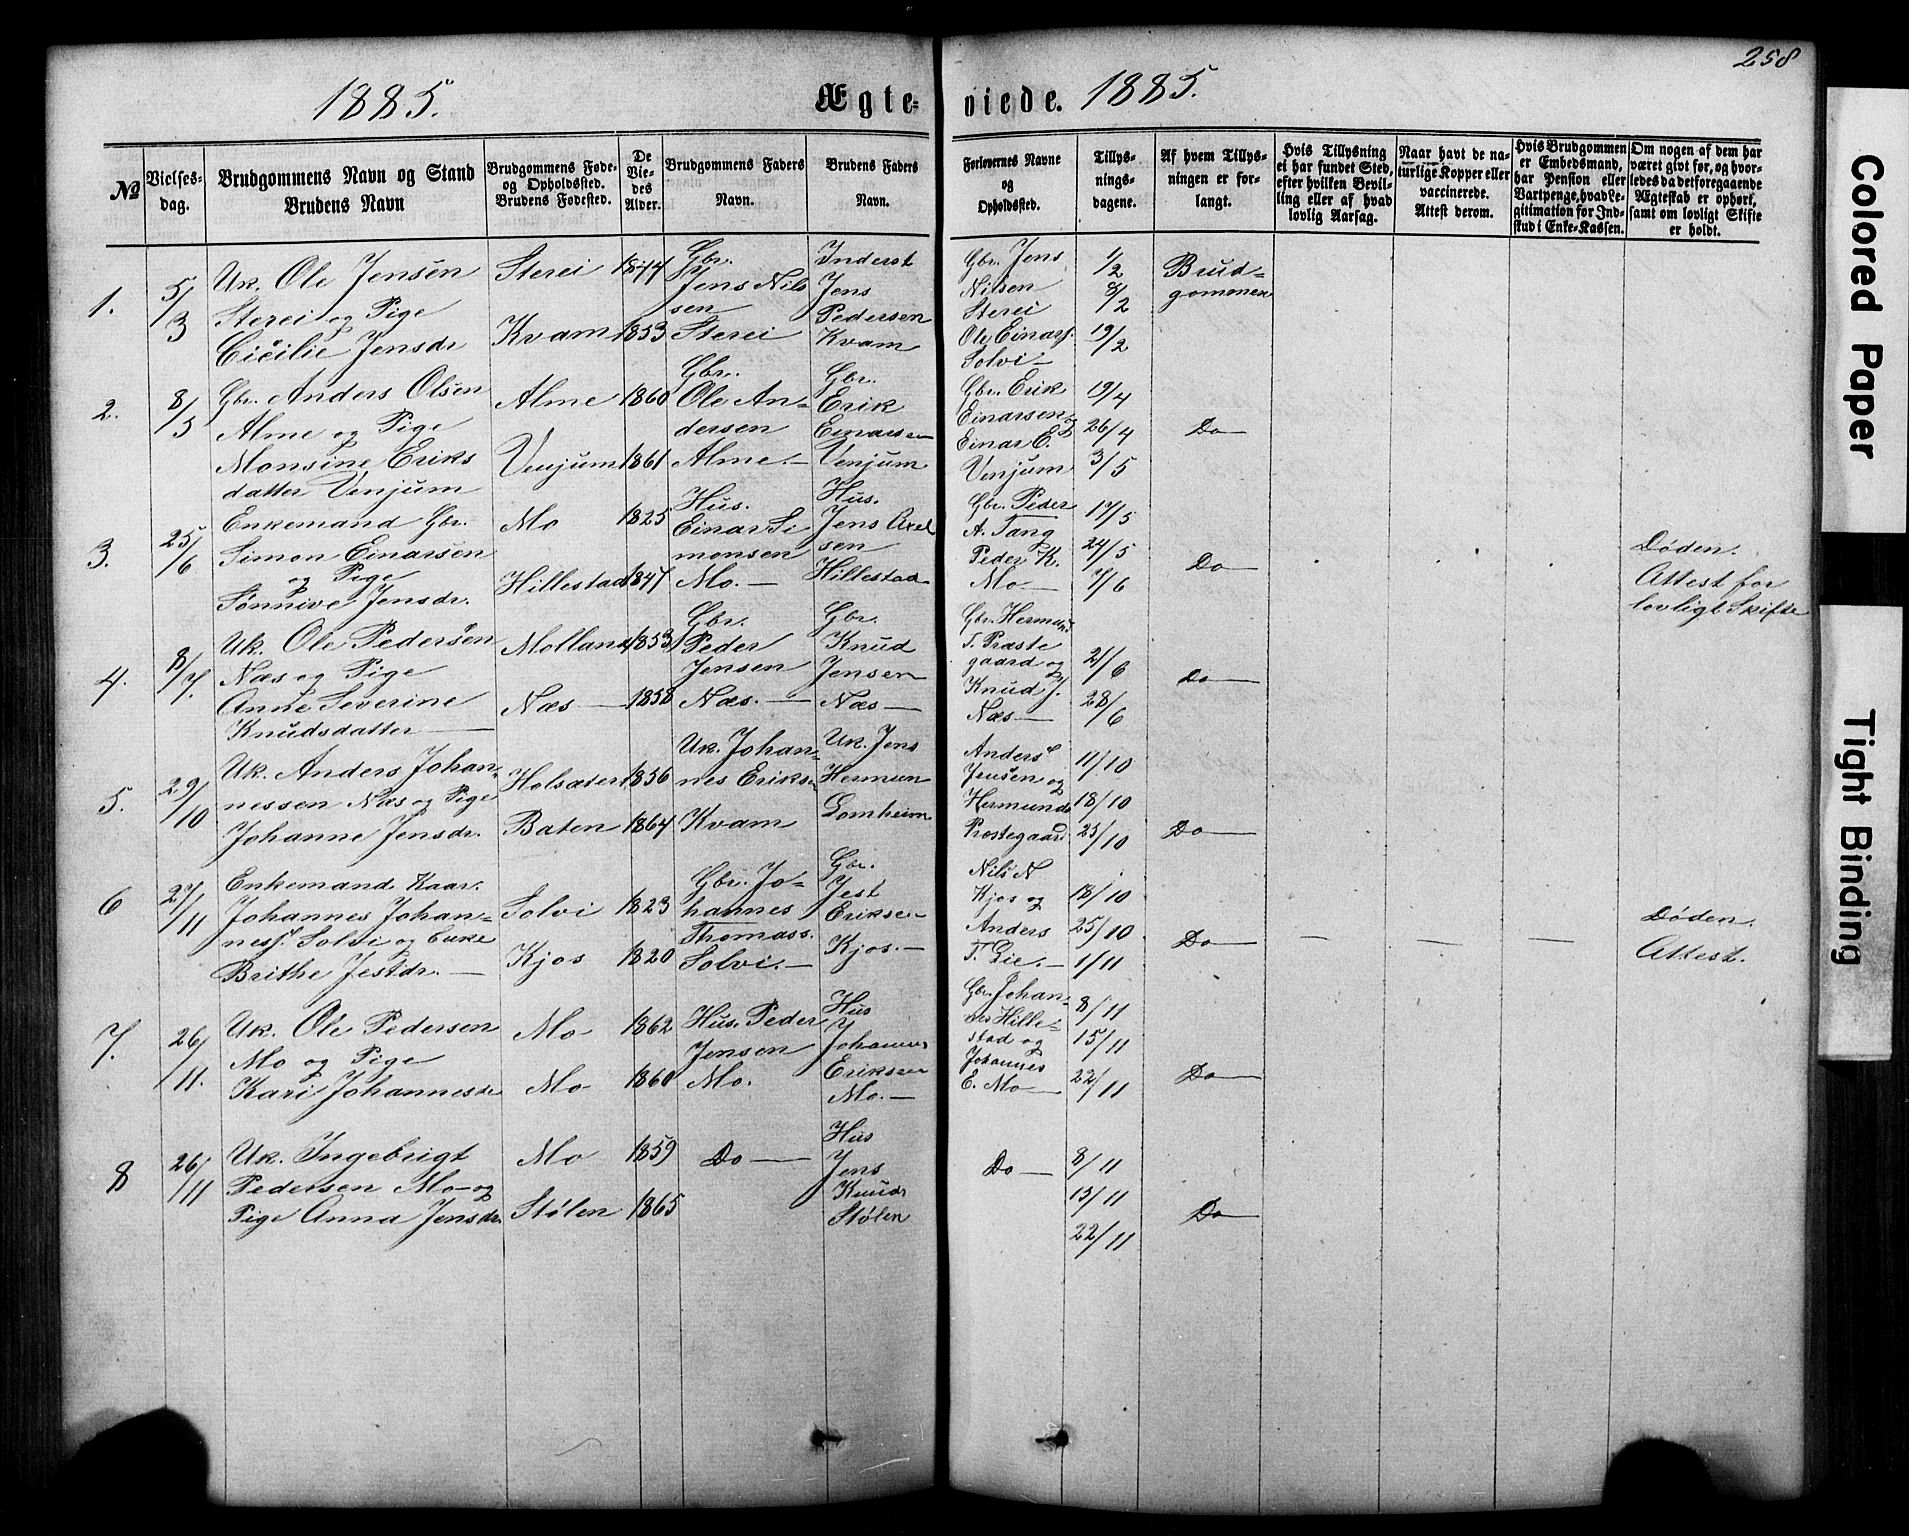 258
1885.
Ægte-
viede.
1885.
No
Vielses-
dag.
Brudgommens Navn og Stand
Brudens Navn
Brudgommens Føde-
og Opholdssted.
Brudens Fødested.
De
Vie-
des
Alder.
Brudgommens Faders
Navn.
Brudens Faders
Navn.
Forlovernes Navne
og
Opholdssted.
Tillys-
nings-
dagene.
Af hvem Tillys-
ningen er for-
langt.
Hvis Tillysning
ei har fundet Sted,
efter hvilken Bevil-
ling eller af hvad
lovlig Aarsag.
Naar havt de na-
turlige Kopper eller
vaccinerede.
Attest derom.
Hvis Brudgommen
er Embedsmand,
har Pension eller
Vartpenge, hvad Le-
gitimation for Ind-
skud i Enke-Kassen.
Om nogen af dem har
været givt før, og hvor-
ledes da det foregaaende
Ægteskab er ophørt,
samt om lovligt Skifte
er holdt.
1.
5/3
Uk. Ole Jensen
Sterei og Pige
Cicilie Jensdr
Sterei
Kvam
1844
1853
Gbr.
Jens Nils
sen
Sterei
Inderst
Jens
Pedersen
Kvam
Gbr. Jens
Nilsen
Sterei
Ole Einars.
Solvi
1/2
8/2
19/2
Brud-
gommen
2.
8/5
Gbr. Anders Olsen
Alme og Pige
Monsine Eriks
datter Venjum
Alme
Venjum
1860
1861
Gbr.
Ole An-
dersen
Alme.
Gbr.
Erik
Einarsen
Venjum
Gbr. Erik
Einarsen
Einar E.
Venjum
19/4
26/4
3/5
Do
3.
25/6
Enkemand Gbr.
Simon Einarsen
og Pige
Sønnive Jensdr.
Mo
Hillestad
1825
1847
Hus.
Einar Si
monsen
Mo.
Hus.
Jens Axel
sen
Hillestad
Gbr. Peder
A. Tang
Peder K.
Mo
17/5
24/5
7/6
Do
Døden.
Attest for
lovligt Skifte
4.
8/7.
Uk. Ole Pedersen
Næs og Pige
Anne Severine
Knudsdatter
Molland
Næs
1853
1858
Gbr.
Peder
Jensen
Næs.
Gbr.
Knud
Jensen
Næs
Gbr. Hermund
T. Præste
gaard og
Knud J.
Næs
21/6
28/6
Do
5.
29/10
Uk. Anders Johan-
nessen Næs og Pige
Johanne Jensdr.
Holsæter
Baten
1856
1864
Uk. Johan-
nes Eriksen
Kvam
Uk. Jens
Hermun
Lomheim
Anders
Jensen og
Hermund
Prestegaard
11/10
18/10
25/10
Do
6
27/11
Enkemand Kaar.
Johannes Johan-
ness. Solvi og Enke
Brithe Jestdr.
Solvi
Kjos
1823
1820
Gbr. Jo-
hannes
Thomass.
Solvi.
Gbr.
Jest
Eriksen
Kjos.
Nils N
Kjos og
Anders
T. Lie.
18/10
25/10
1/11
Do
Døden.
Attest.
7.
26/11.
Uk. Ole Pedersen
Mo og Pige
Kari Johannesdr
Mo
Mo
1862
1860
Hus. Peder
Jensen
Mo.
Hus
Johannes
Eriksen
Mo.
Gbr. Johan-
nes Hille-
stad og
Johannes
E. Mo
8/11
15/11
22/11
Do
8
26/11
Uk. Ingebrigt
Pedersen Mo og
Pige Anna Jensdr.
Mo
Stølen
1859
1865
Do
Hus
Jens
Knuds
Stølen
Do
8/11
15/11
22/11
Do
Colored Paper
Tight Binding